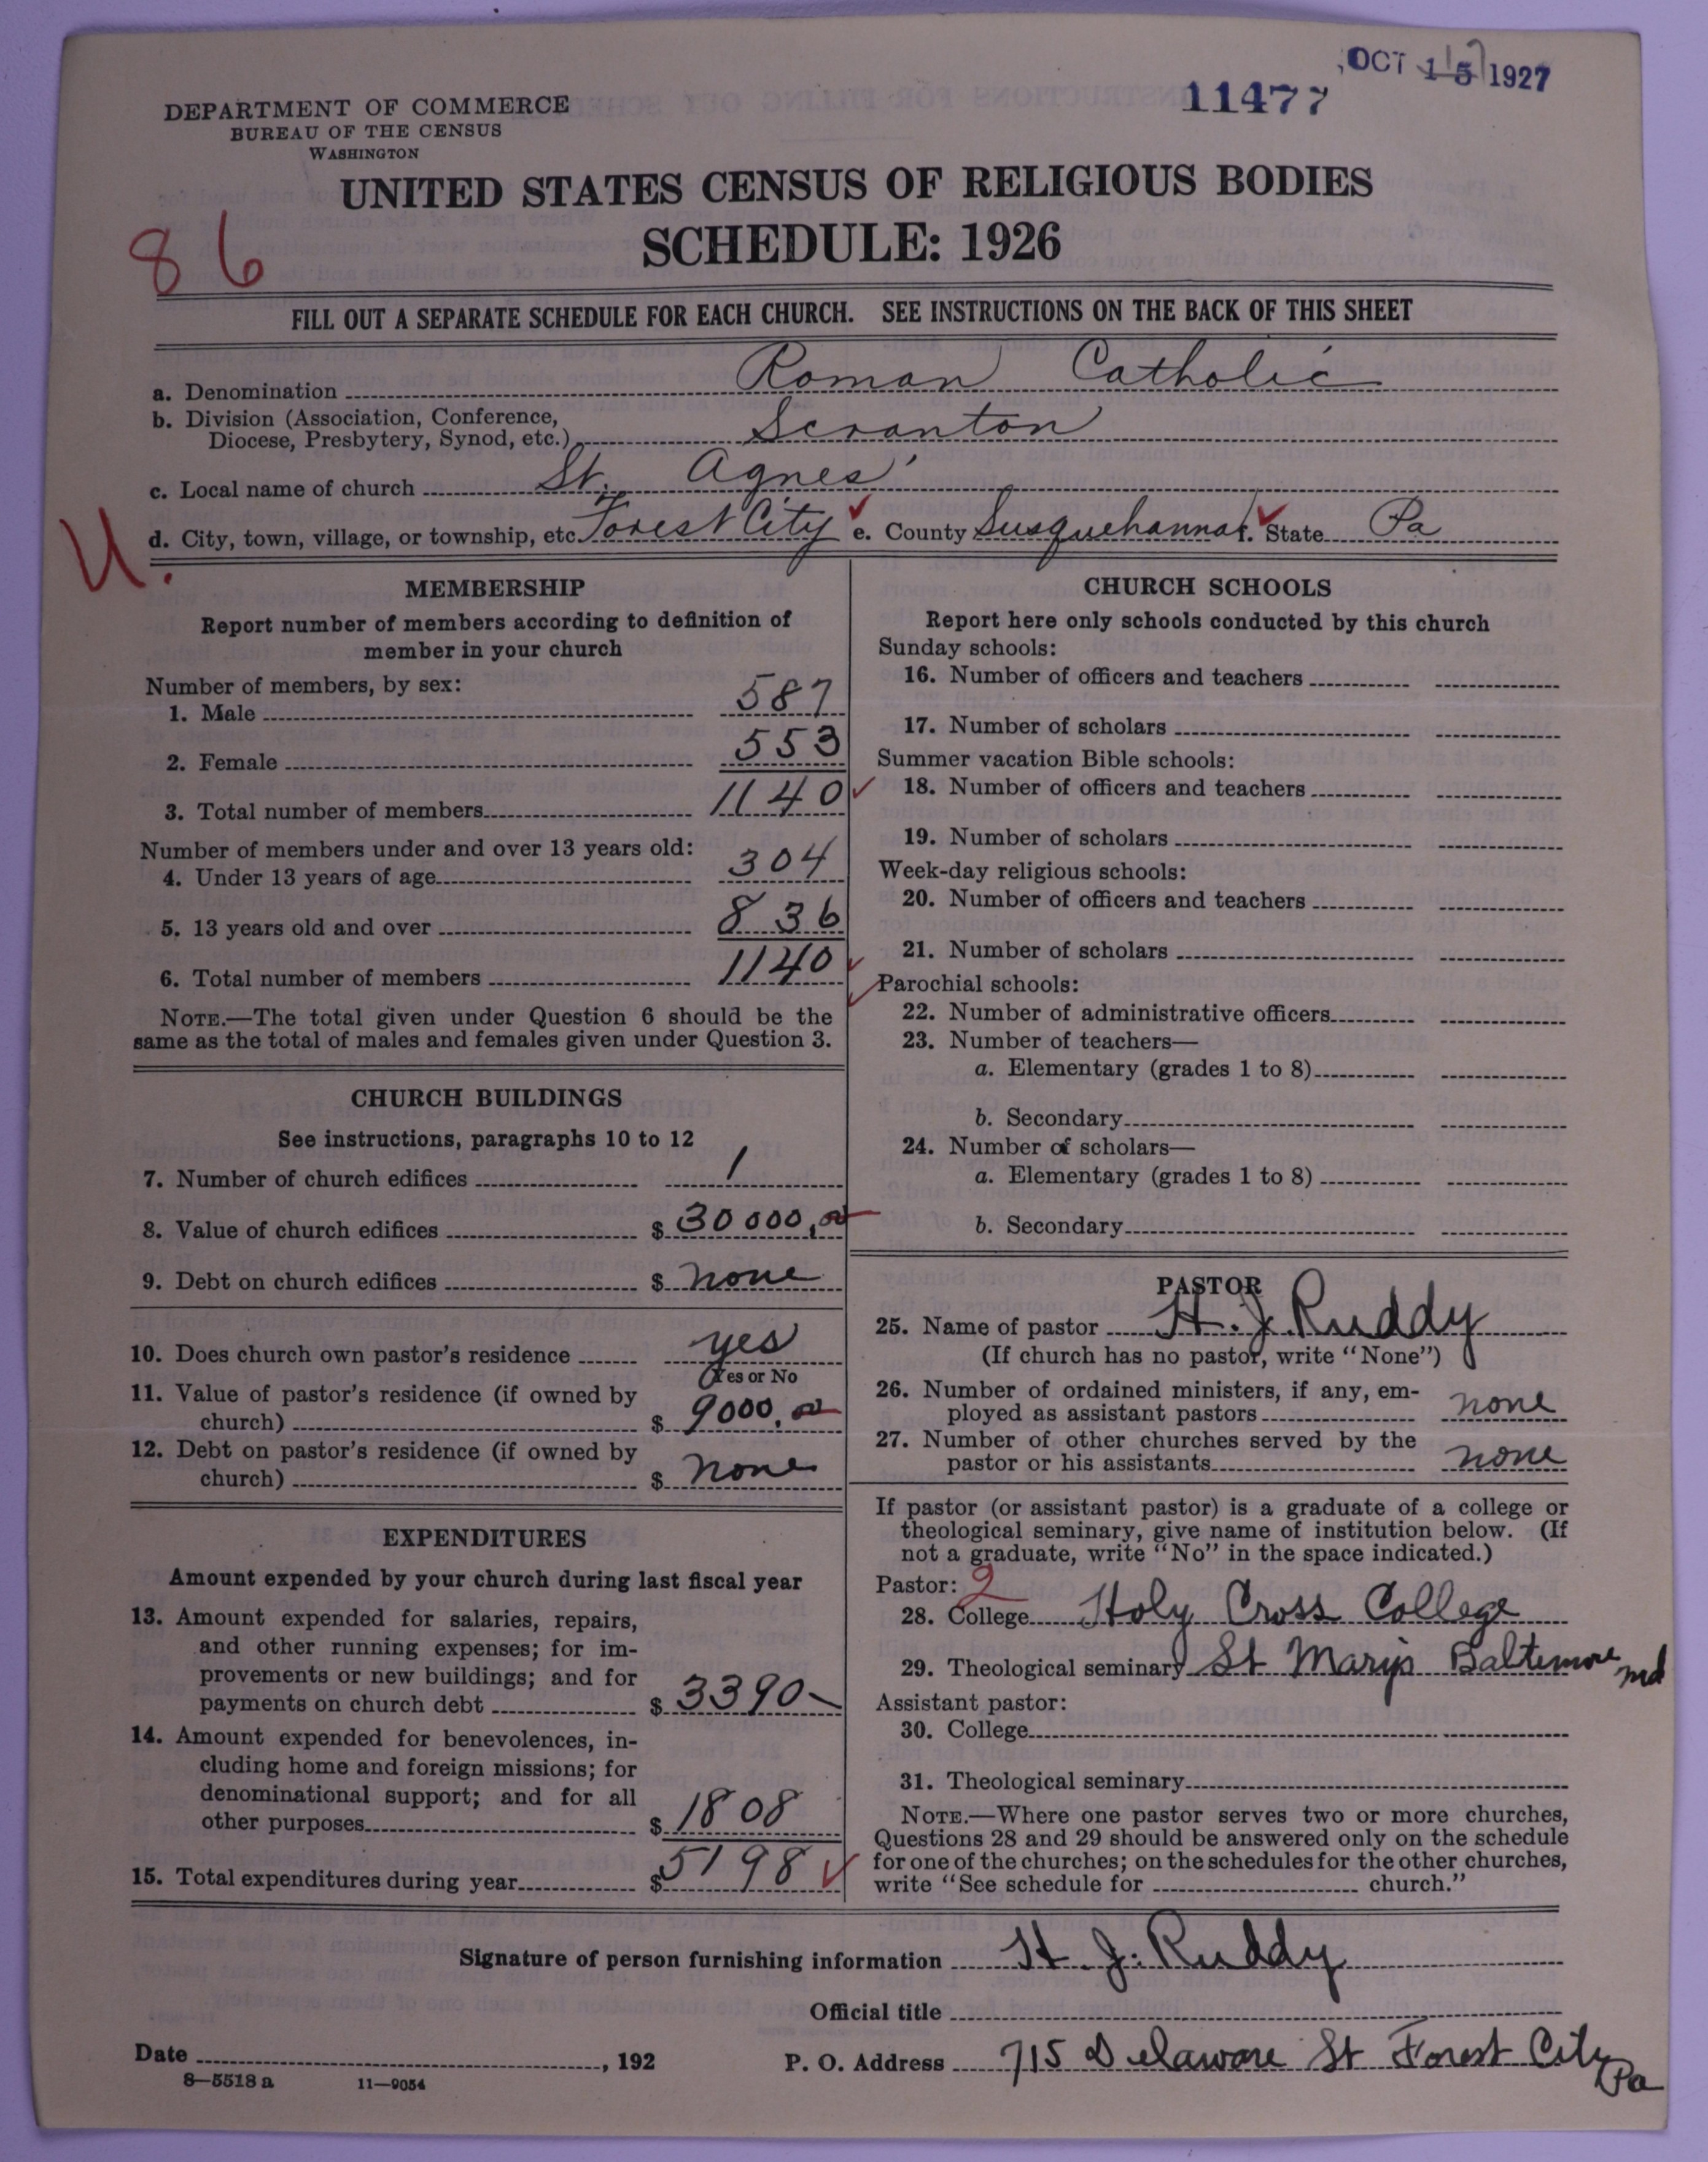 OCT 15 1927
11477
DEPARTMENT OF COMMERCE
BUREAU OF THE CENSUS
WASHINGTON
UNITED STATES CENSUS OF RELIGIOUS BODIES
SCHEDULE: 1926
86
FILL OUT A SEPARATE SCHEDULE FOR EACH CHURCH. SEE INSTRUCTIONS ON THE BACK OF THIS SHEET
a. Denomination Roman Catholic
b. Division (Association, Conference,
Diocese, Presbytery, Synod, etc.) Scranton
c. Local name of church St. Agnes'
U.
d. City, town, village, or township, etc. Forest City e. County Susquehanna f. State Pa
MEMBERSHIP
Report number of members according to definition of
member in your church
Number of members, by sex:
1. Male 587
2. Female 553
3. Total number of members 1140
Number of members under and over 13 years old:
4. Under 13 years of age 304
5. 13 years old and over 836
6. Total number of members 1140
NOTE.—The total given under Question 6 should be the
same as the total of males and females given under Question 3.
CHURCH BUILDINGS
See instructions, paragraphs 10 to 12
7. Number of church edifices 1
8. Value of church edifices $ 30000.00
9. Debt on church edifices $ none
10. Does church own pastor's residence yes
Yes or No
11. Value of pastor's residence (if owned by
church) $ 9000.00
12. Debt on pastor's residence (if owned by
church) $ none
EXPENDITURES
Amount expended by your church during last fiscal year
13. Amount expended for salaries, repairs,
and other running expenses; for im-
provements or new buildings; and for
payments on church debt $ 3390-
14. Amount expended for benevolences, in-
cluding home and foreign missions; for
denominational support; and for all
other purposes $ 1808
15. Total expenditures during year $ 5198
CHURCH SCHOOLS
Report here only schools conducted by this church
Sunday schools:
16. Number of officers and teachers
17. Number of scholars
Summer vacation Bible schools:
18. Number of officers and teachers
19. Number of scholars
Week-day religious schools:
20. Number of officers and teachers
21. Number of scholars
Parochial schools:
22. Number of administrative officers
23. Number of teachers—
a. Elementary (grades 1 to 8)
b. Secondary
24. Number of scholars—
a. Elementary (grades 1 to 8)
b. Secondary
PASTOR
25. Name of pastor H. J. Ruddy
(If church has no pastor, write "None")
26. Number of ordained ministers, if any, em-
ployed as assistant pastors none
27. Number of other churches served by the
pastor or his assistants none
If pastor (or assistant pastor) is a graduate of a college or
theological seminary, give name of institution below. (If
not a graduate, write "No" in the space indicated.)
Pastor: 2
28. College Holy Cross College
29. Theological seminary St Marys Baltimore md
Assistant pastor:
30. College
31. Theological seminary
NOTE.—Where one pastor serves two or more churches,
Questions 28 and 29 should be answered only on the schedule
for one of the churches; on the schedules for the other churches,
write "See schedule for church."
Signature of person furnishing information H. J. Ruddy
Official title
Date , 192 P. O. Address 715 Delaware St Forest City
Pa
8—5518 a 11—9054